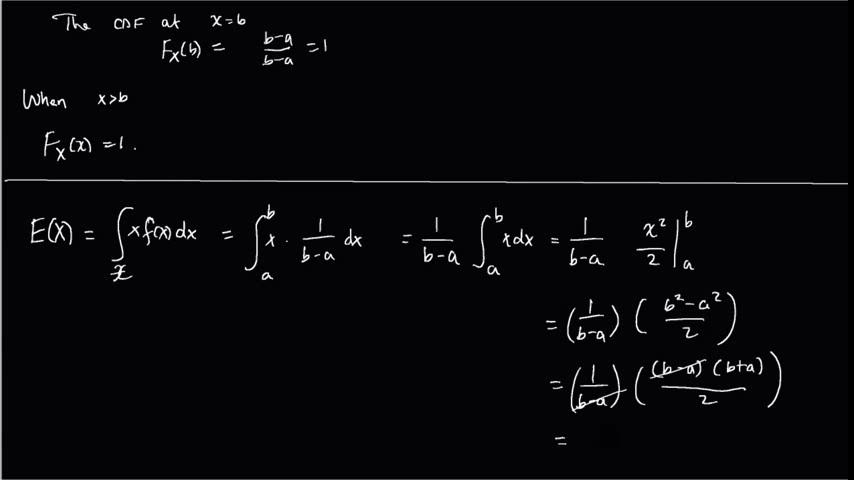 The CDF at x=b
F_X(b) = \frac{b-a}{b-a} = 1
When x>b
F_X(x) = 1.
E(X) = \int_x x f(x) dx = \int_a^b x \cdot \frac{1}{b-a} dx = \frac{1}{b-a} \int_a^b x dx = \frac{1}{b-a} \frac{x^2}{2} |_a^b
= (\frac{1}{b-a}) (\frac{b^2-a^2}{2})
= (\frac{1}{b-a}) (\frac{(b-a)(b+a)}{2})
=